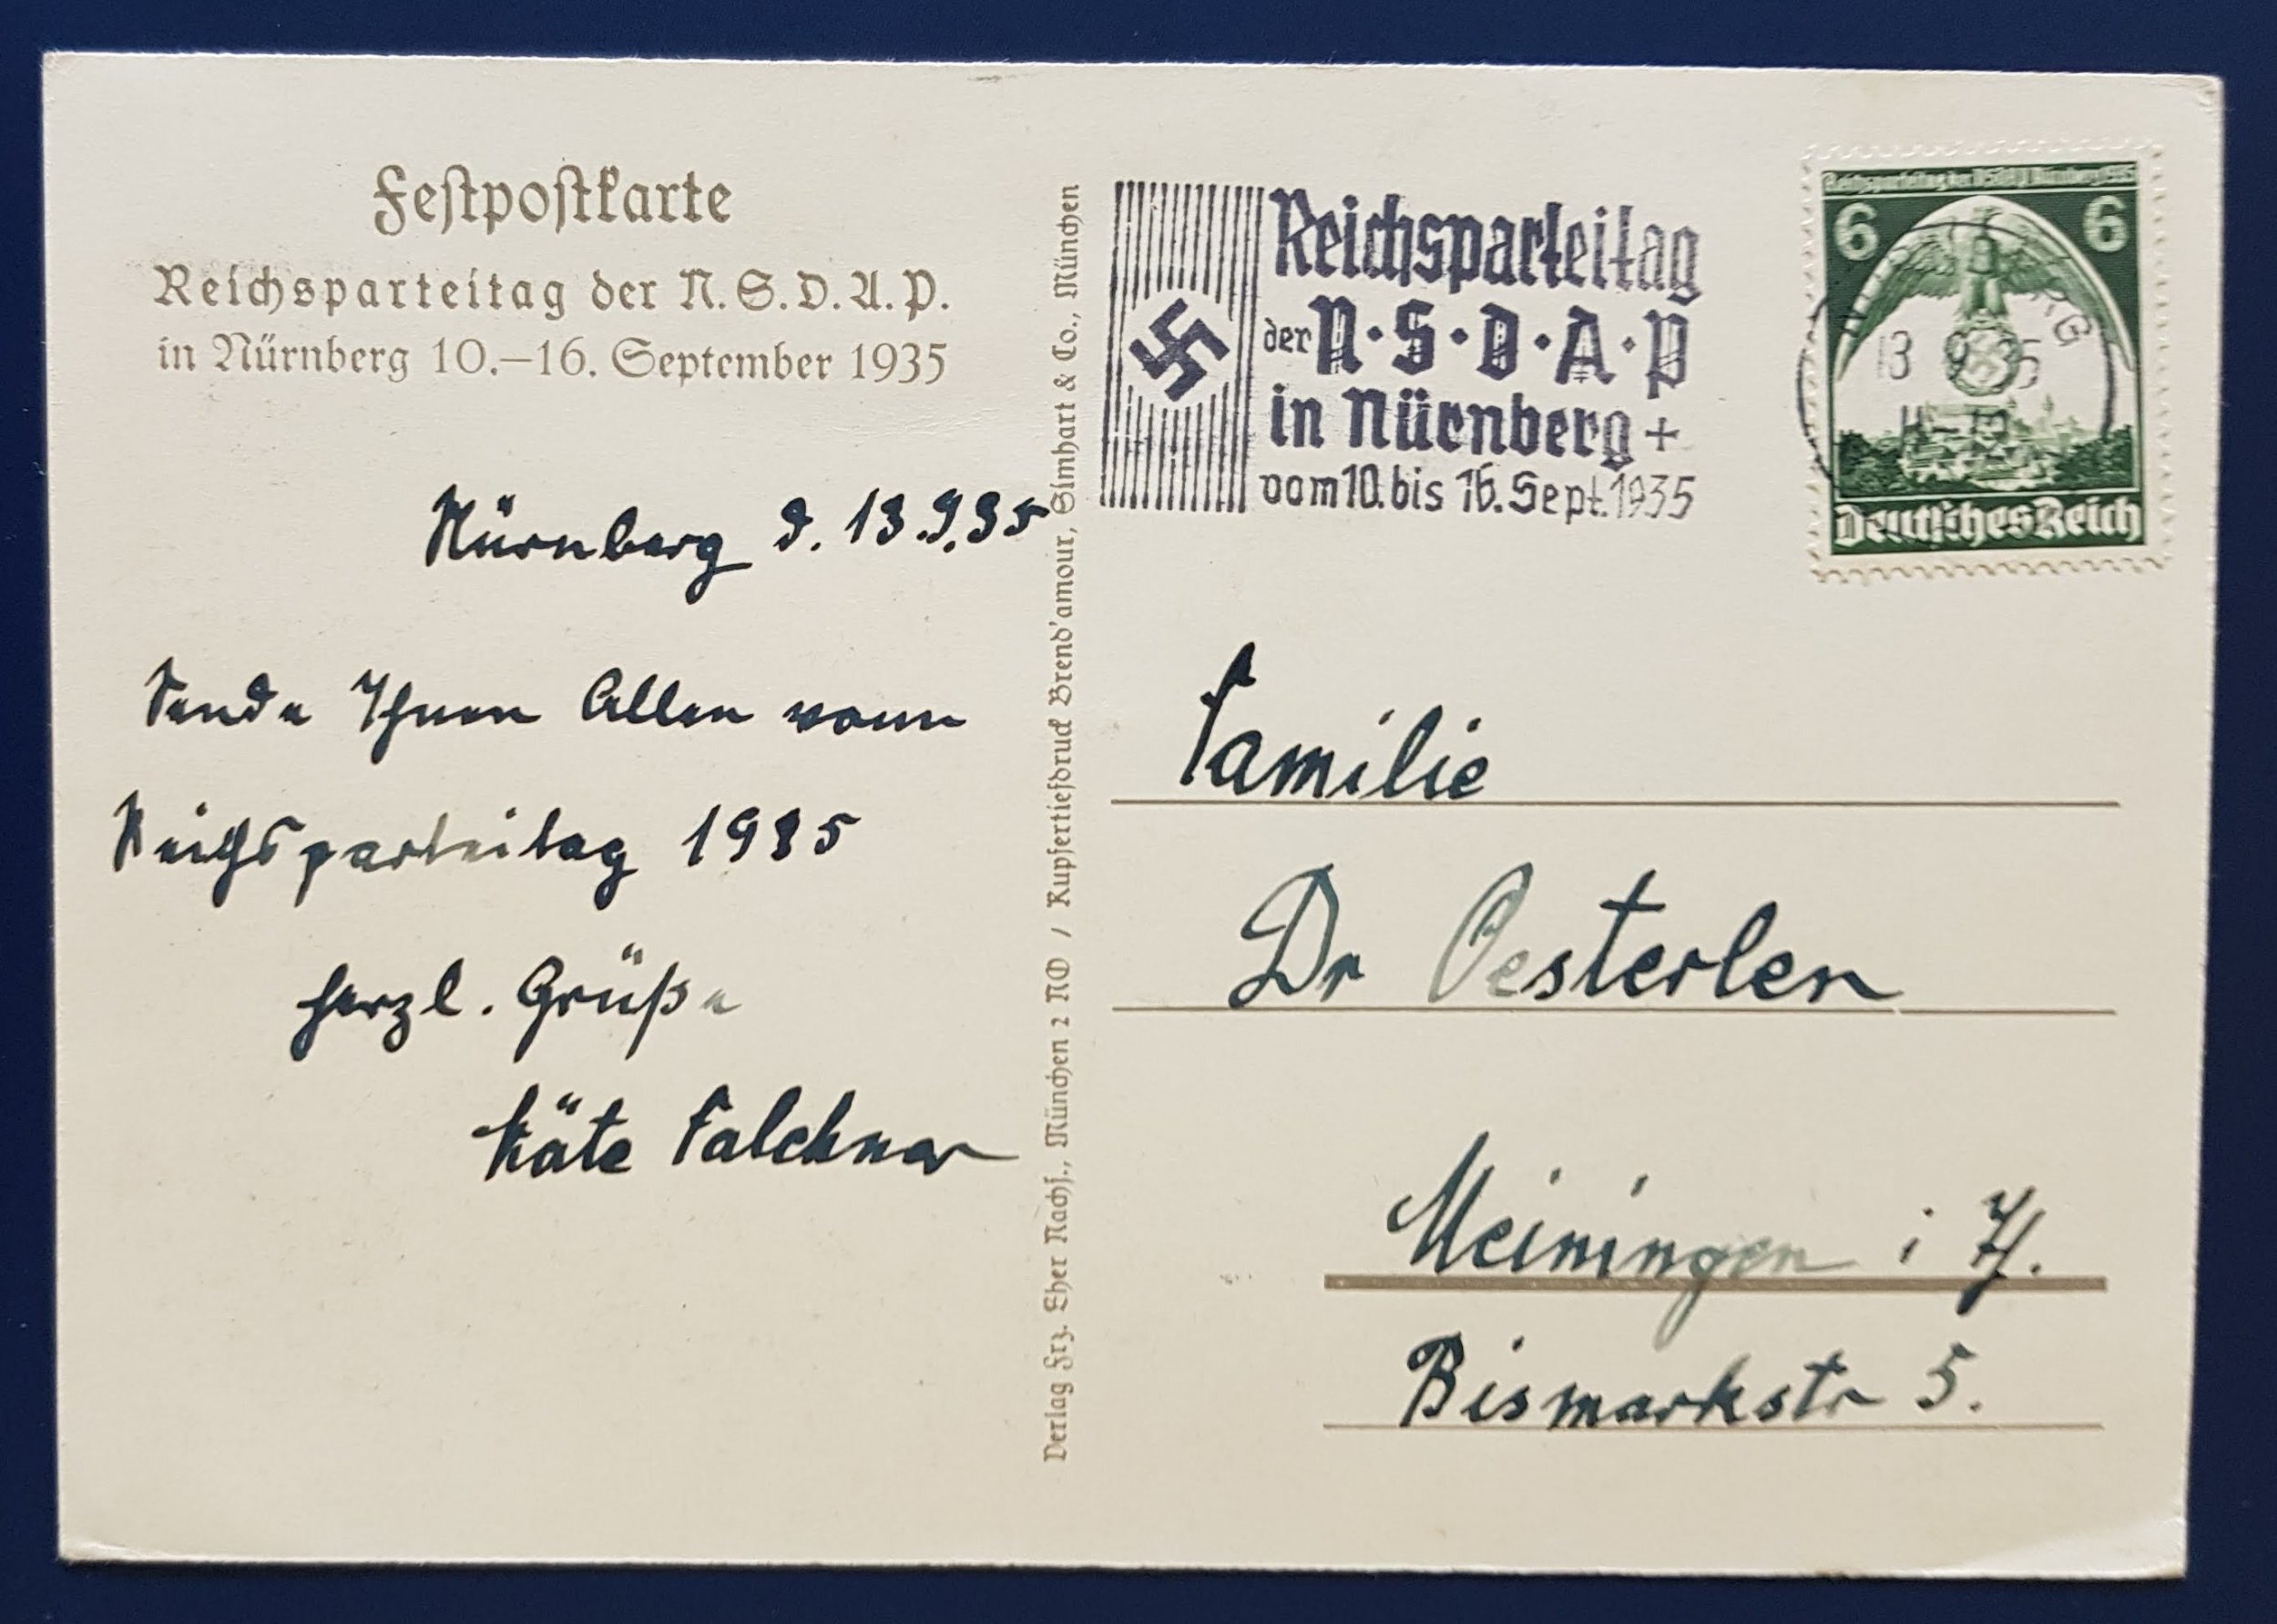 Festpostkarte
Reichsparteitag der N.S.D.A.P.
in Nürnberg 10.–16. September 1935
Nürnberg d. 13.9.35
Sende Ihnen Allen vom
Reichsparteitag 1935
herzl. Grüße
Käte Falckner
Verlag Frz. Eher Nachf., München 2 NO / Kupfertiefdruck Brend'amour, Simhart & Co., München
Reichsparteitag
der N·S·D·A·P
in Nürnberg +
vom 10. bis 16. Sept. 1935
Reichsparteitag der NSDAP Nürnberg 1935
6 6
13 9 35
Deutsches Reich
Familie
Dr Oesterlen
Meiningen i Th.
Bismarkstr 5.